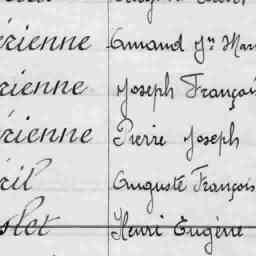 rienne Amand Jn Mar
rienne Joseph Françoi
rienne Pierre Joseph
ril Auguste François
slet Henri Eugène